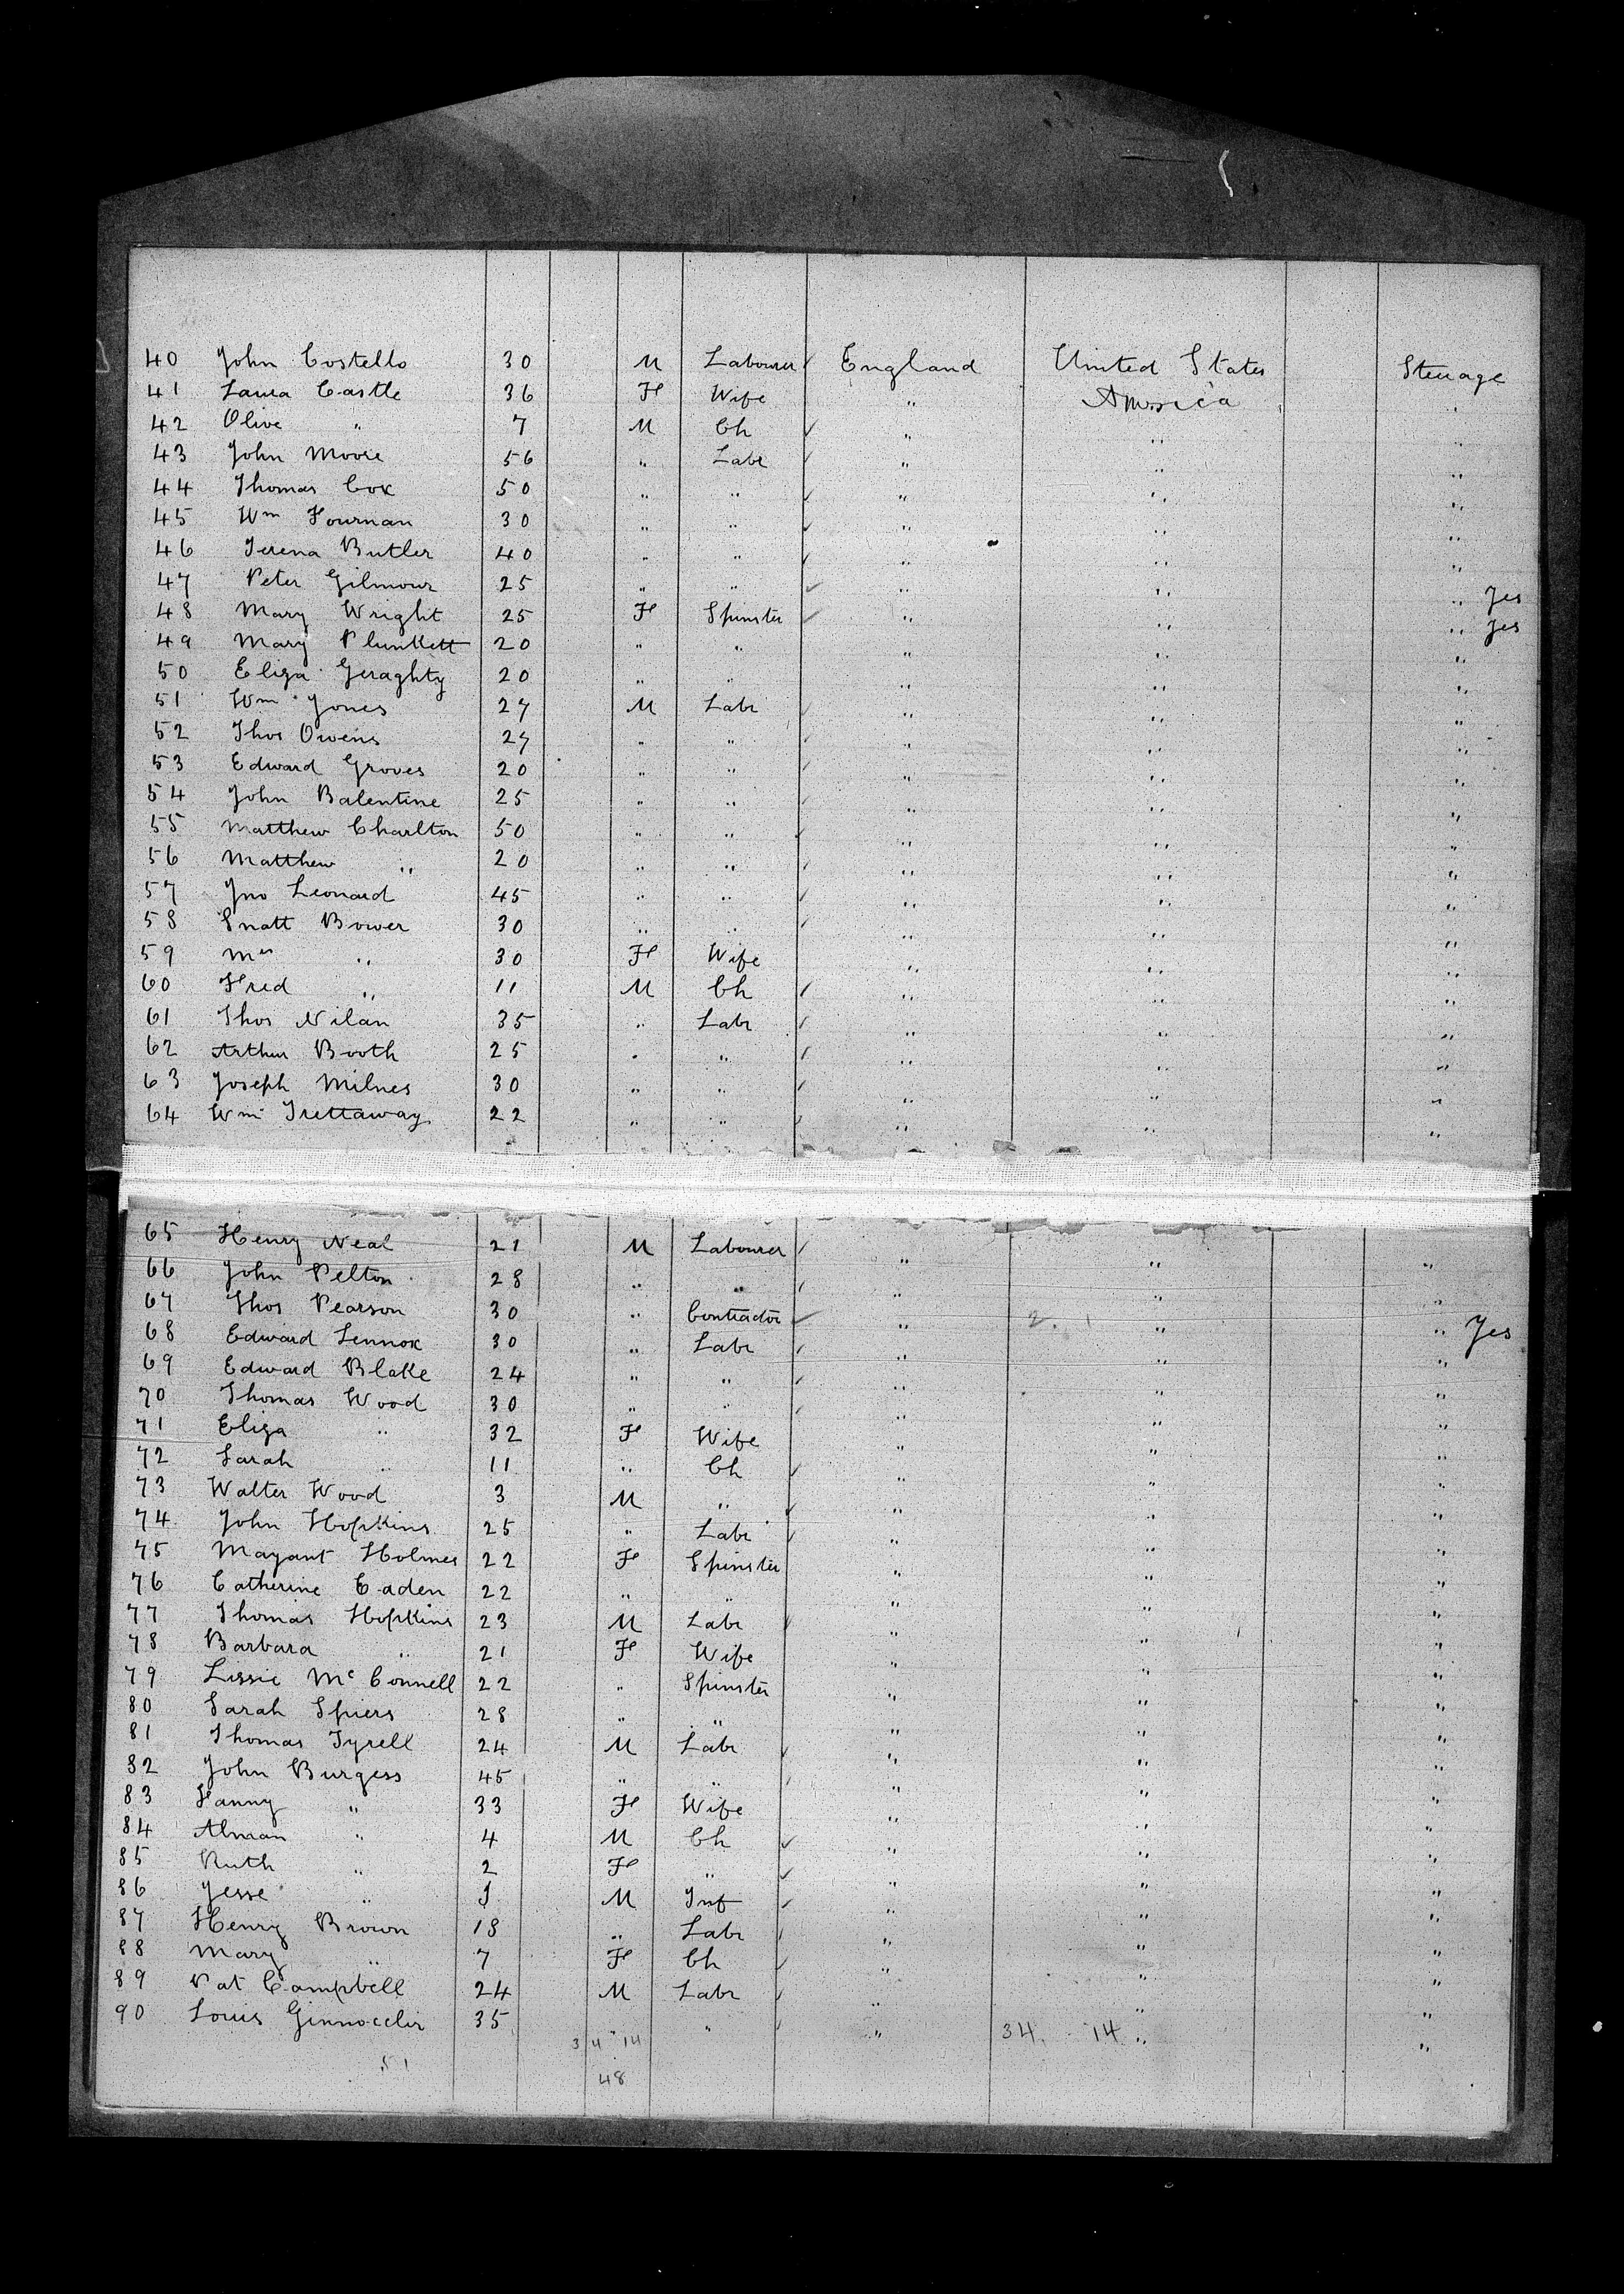 40 John Costello 30 M Labourer England United States Steerage
41 Laura Castle 36 F Wife " America "
42 Olive " 7 M Ch " " "
43 John Moore 56 " Labr " " "
44 Thomas Cox 50 " " " " "
45 Wm Fournan 30 " " " " "
46 Terena Butler 40 " " " " "
47 Peter Gilmour 25 " " " " " Yes
48 Mary Wright 25 F Spinster " " " Yes
49 Mary Plunkett 20 " " " " "
50 Eliza Geraghty 20 " " " " "
51 Wm Jones 27 M Labr " " "
52 Thos Owens 27 " " " " "
53 Edward Groves 20 " " " " "
54 John Balentine 25 " " " " "
55 Matthew Charlton 50 " " " " "
56 Matthew " 20 " " " " "
57 Jno Leonard 45 " " " " "
58 Snatt Bower 30 " " " " "
59 Mrs " 30 F Wife " " "
60 Fred " 11 M Ch " " "
61 Thos Nilan 35 " Labr " " "
62 Arthur Booth 25 " " " " "
63 Joseph Milnes 30 " " " " "
64 Wm Trettaway 22 " " " " "
65 Henry Neal 21 M Labourer " " "
66 John Pelton 28 " " " " "
67 Thos Pearson 30 " Contractor " 2. " " Yes
68 Edward Lennox 30 " Labr " " "
69 Edward Blake 24 " " " " "
70 Thomas Wood 30 " " " " "
71 Eliza " 32 F Wife " " "
72 Sarah " 11 " Ch " " "
73 Walter Wood 3 M " " " "
74 John Hopkins 25 " Labr " " "
75 Magant Holmes 22 F Spinster " " "
76 Catherine Eaden 22 " " " " "
77 Thomas Hopkins 23 M Labr " " "
78 Barbara " 21 F Wife " " "
79 Lissie McConnell 22 " Spinster " " "
80 Sarah Spiers 28 " " " " "
81 Thomas Tyrell 24 M Labr " " "
82 John Burgess 45 " " " " "
83 Fanny " 33 F Wife " " "
84 Alman " 4 M Ch " " "
85 Ruth " 2 F " " " "
86 Jesse " 1 M Inf " " "
87 Henry Brown 18 " Labr " " "
88 Mary " 7 F Ch " " "
89 Pat Campbell 24 M Labr " " "
90 Louis 35 " " " "
34 14 34. 14
51 48